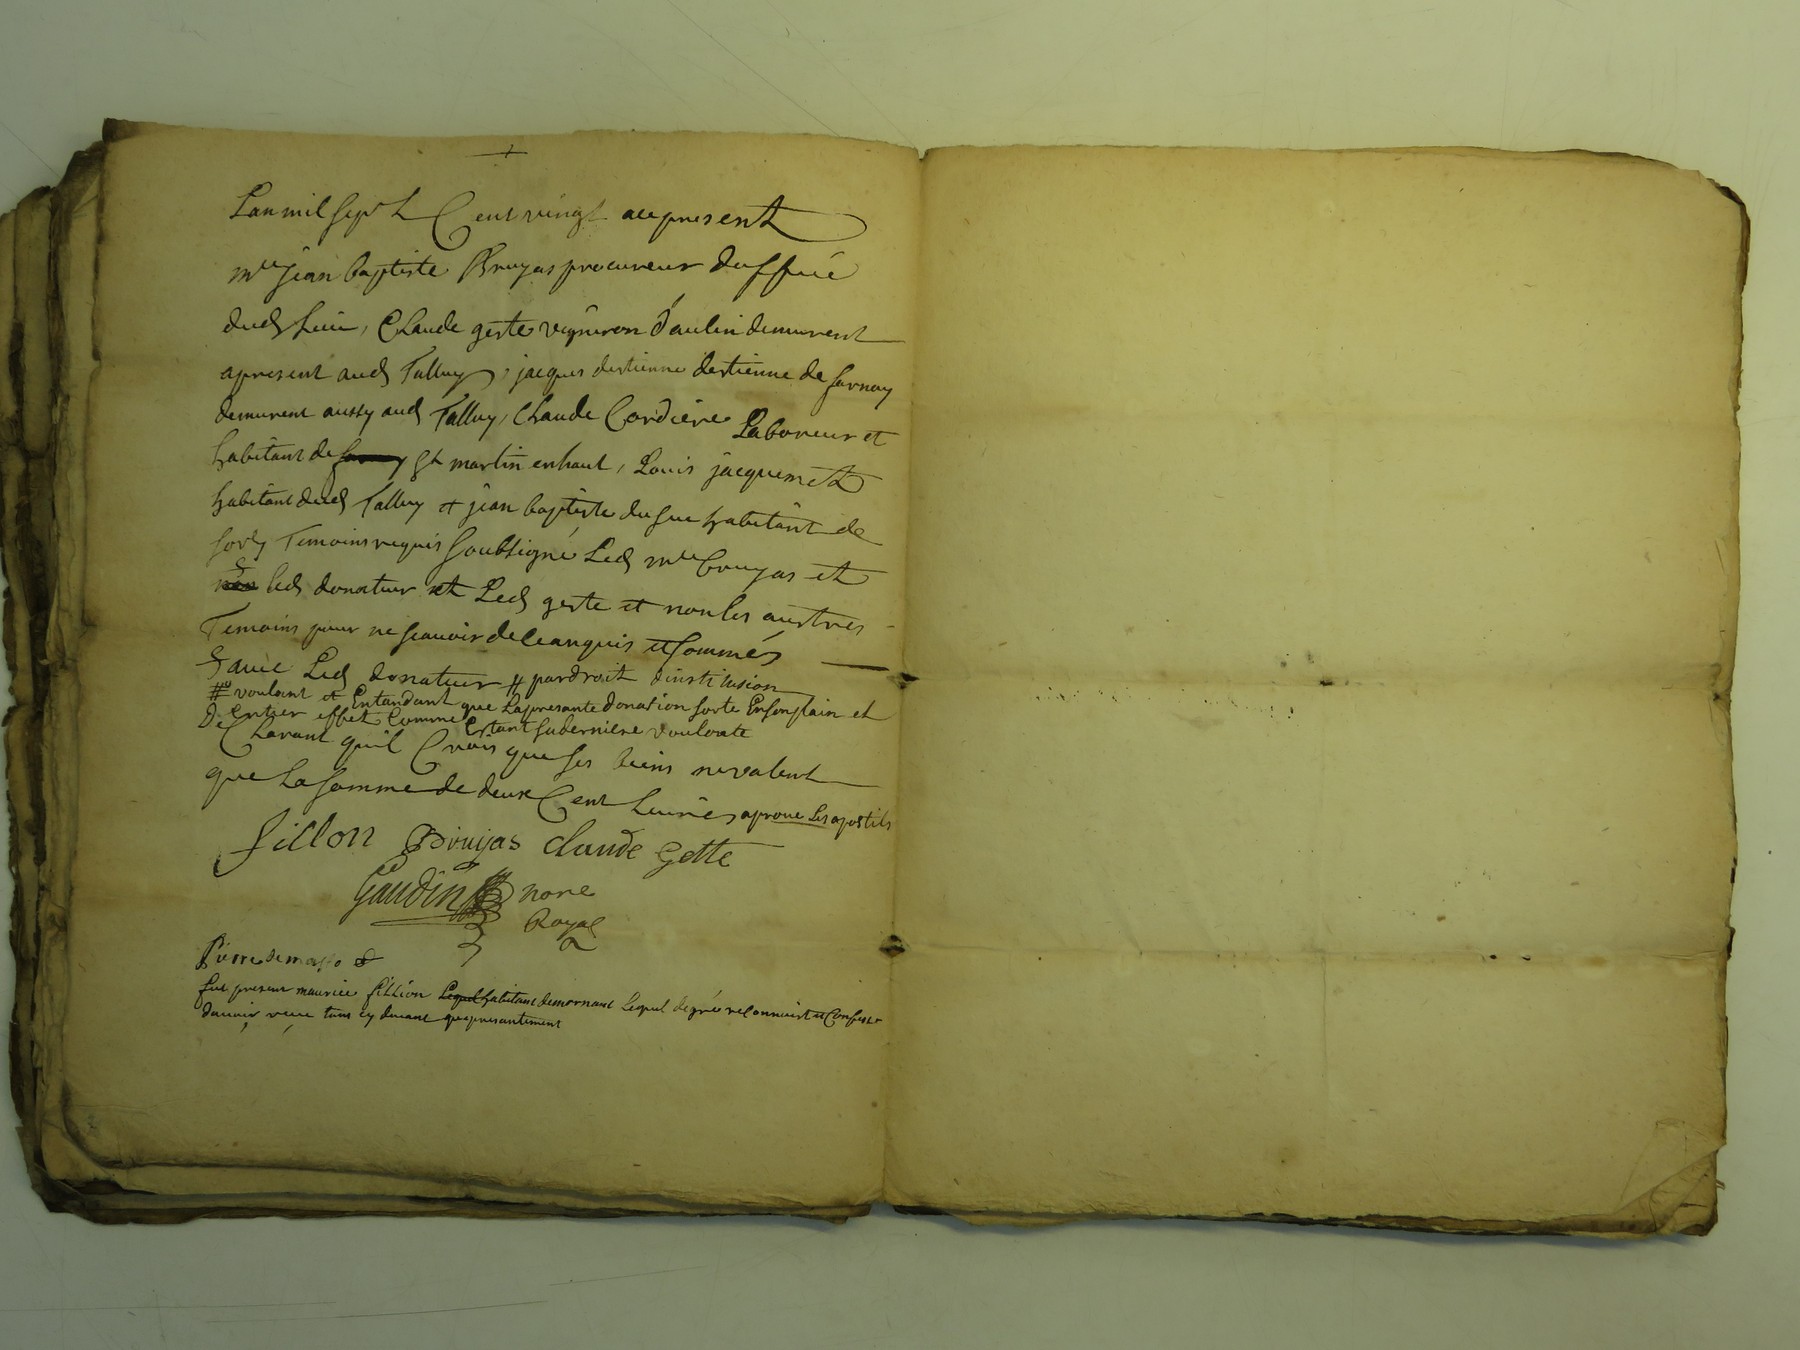 Lan mil sept Cent vingt au present
me jean baptiste Bruyas procureur doffice
dud lieu, Claude geste vigneron daulin demurent
apresent aud Talluy, jacques destienne destienne de sornay
demurent aussy aud Talluy, Claude Cordiere Laboreur et
habitant de st martin enhaut, Louis jacquemet
habitant dud Talluy et jean baptiste du habitant de
Temoins requis soubsigné Led me bruyas et
led donateur et Led geste et non les austres
Temoins pour ne scavoir de ce anquis et sommés
Led donateur # par droit dinstitusion
# voulant et Entandant que la presante donation sorte Enson plain et
D Entier effet Comme Estant sa derniere voulonte
De Clarant quil Crois que ses biens ne valent
que La somme de deux Cent Livres aprouve Les apostils
fillon Bruyas claude Gette
Gaudin nore
Royal
Pierre
fut present maurice fillion Lequel habitant de mornant Lequel de gré reconnoist et Confesse
davoir receu tant cy devant que presantement